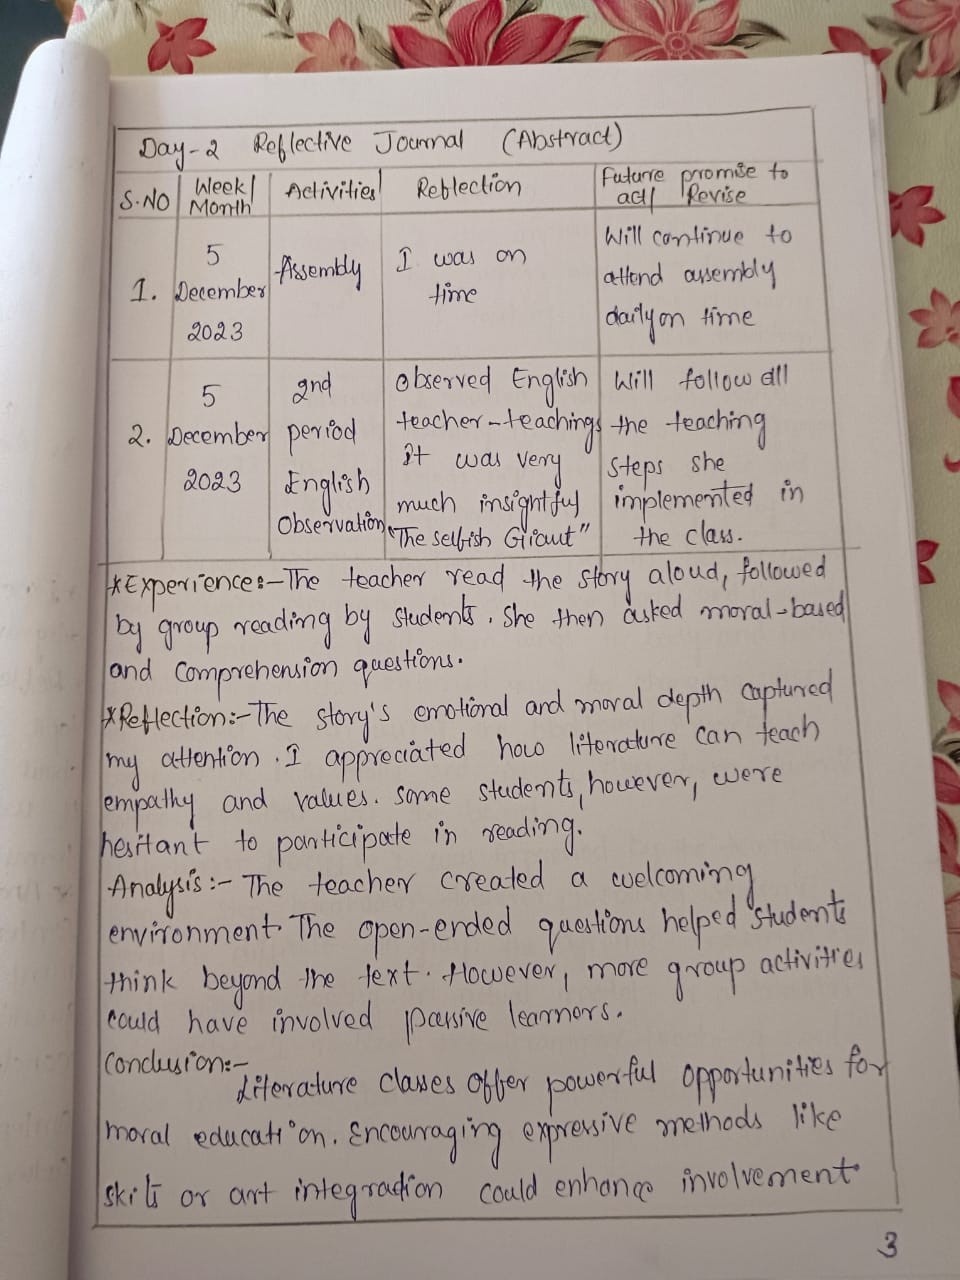 Day-2 Reflective Journal (Abstract)
S.NO
Week/
Month
Activities
Reflection
Future promise to
act/ Revise
1.
5
December
2023
Assembly
I was on
time
Will continue to
attend assembly
daily on time
2.
5
December
2023
2nd
period
English
Observation
Observed English
teacher-teachings
it was very
much insightful
"The selfish Giant"
Will follow all
the teaching
steps she
implemented in
the class.
*Experience:-The teacher read the story aloud, followed
by group reading by students. She then asked moral-based
and comprehension questions.
*Reflection:-The story's emotional and moral depth captured
my attention. I appreciated how literature can teach
empathy and values. some students, however, were
hesitant to participate in reading.
Analysis:- The teacher created a welcoming
environment. The open-ended questions helped students
think beyond the text. However, more group activities
could have involved passive learners.
Conclusion:-
Literature classes offer powerful opportunities for
moral education. Encouraging expressive methods like
skits or art integration could enhance involvement
3